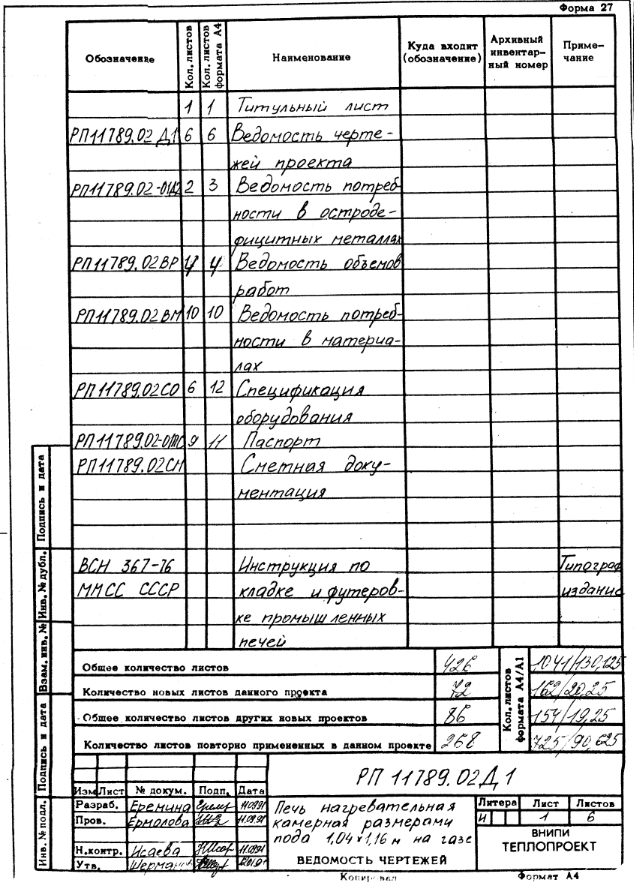 Форма 27
Обозначение
Кол. листов
Кол. листов формата А4
Наименование
Куда входит (обозначение)
Архивный инвентар-ный номер
Приме-чание
1 1 Титульный лист
РП11789.02 Д1 6 6 Ведомость черте-
жей проекта
РП11789.02-01Д2 2 3 Ведомость потреб
ности в остроде-
фицитных металлах
РП11789.02ВР 4 4 Ведомость объемов
работ
РП11789.02ВМ 10 10 Ведомость потреб-
ности в материа-
лах
РП11789.02СО 6 12 Спецификация
оборудования
9 11 Паспорт
РП11789.02СМ Сметная доку-
ментация
ВСН 367-76 Инструкция по Типограф
ММСС СССР кладке и футеров- издание
ке промышленных
печей
Общее количество листов 426
Кол. листов формата А4/А1
1041/130,125
Количество новых листов данного проекта 72 162/20,25
Общее количество листов других новых проектов 86 154/19,25
Количество листов повторно примененных в данном проекте 268 725/90,625
Инв. № подл.
Подпись и дата
Взам. инв. №
Инв. № дубл.
Подпись и дата
РП 11789.02Д1
Изм Лист № докум. Подп. Дата
Разраб. Еремина
Пров. Ермолова
Н.контр. Исаева
Утв.
Печь нагревательная
камерная размерами
пода 1,04х1,16 м на газе
ВЕДОМОСТЬ ЧЕРТЕЖЕЙ
Литера Лист Листов
И 1 6
ВНИПИ
ТЕПЛОПРОЕКТ
Копировал
Формат А4